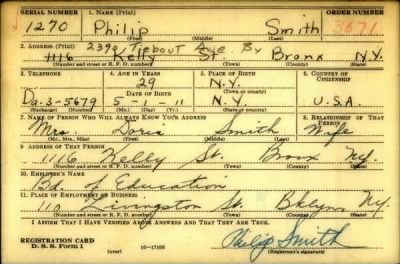 SERIAL NUMBER 1. NAME (Print) ORDER NUMBER
1270 Philip Smith 3671
(First) (Middle) (Last)
2. ADDRESS (Print)
2390 Tiebout Ave Bx
1116 Kelly St. Bronx N.Y.
(Number and street or R. F. D. number) (Town) (County) (State)
3. TELEPHONE 4. AGE IN YEARS 5. PLACE OF BIRTH 6. COUNTRY OF CITIZENSHIP
29 N.Y.
DATE OF BIRTH
Da-3-5679 5-1-11 N.Y. U.S.A.
(Exchange) (No.) (Mo.) (Day) (Yr.) (State or country)
7. NAME OF PERSON WHO WILL ALWAYS KNOW YOUR ADDRESS 8. RELATIONSHIP OF THAT PERSON
Mrs. Doris Smith Wife
(Mr., Mrs., Miss) (First) (Middle) (Last)
9. ADDRESS OF THAT PERSON
1116 Kelly St. Bronx Ny.
(Number and street or R. F. D. number) (Town) (County) (State)
10. EMPLOYER'S NAME
Bd. of Education
11. PLACE OF EMPLOYMENT OR BUSINESS
110 Livingston St. Bklyn Ny.
(Number and street or R. F. D. number) (Town) (County) (State)
I AFFIRM THAT I HAVE VERIFIED ABOVE ANSWERS AND THAT THEY ARE TRUE.
REGISTRATION CARD
D. S. S. Form 1 (over) 16-17105 Philip Smith
(Registrant's signature)